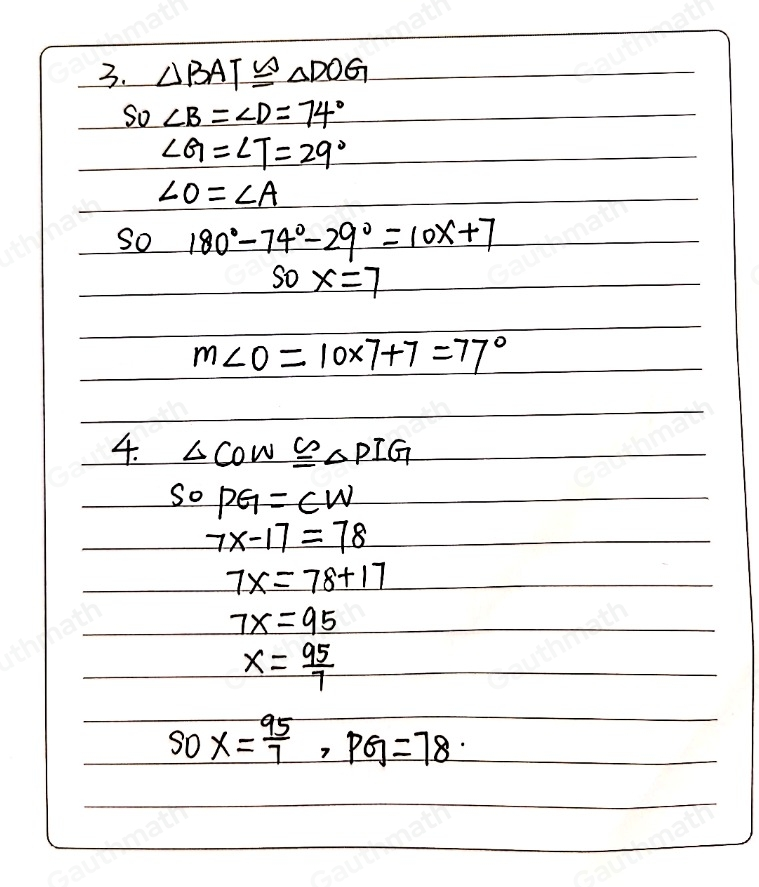 3. △BAT ≌ △DOG
So ∠B = ∠D = 74°
∠G = ∠T = 29°
∠O = ∠A
So 180° - 74° - 29° = 10x + 7
So x = 7
m∠O = 10×7+7 = 77°
4. △COW ≌ △PIG
So PG = CW
7x - 17 = 78
7x = 78 + 17
7x = 95
x = 95/7
So x = 95/7 , PG = 78.
Gauthmath